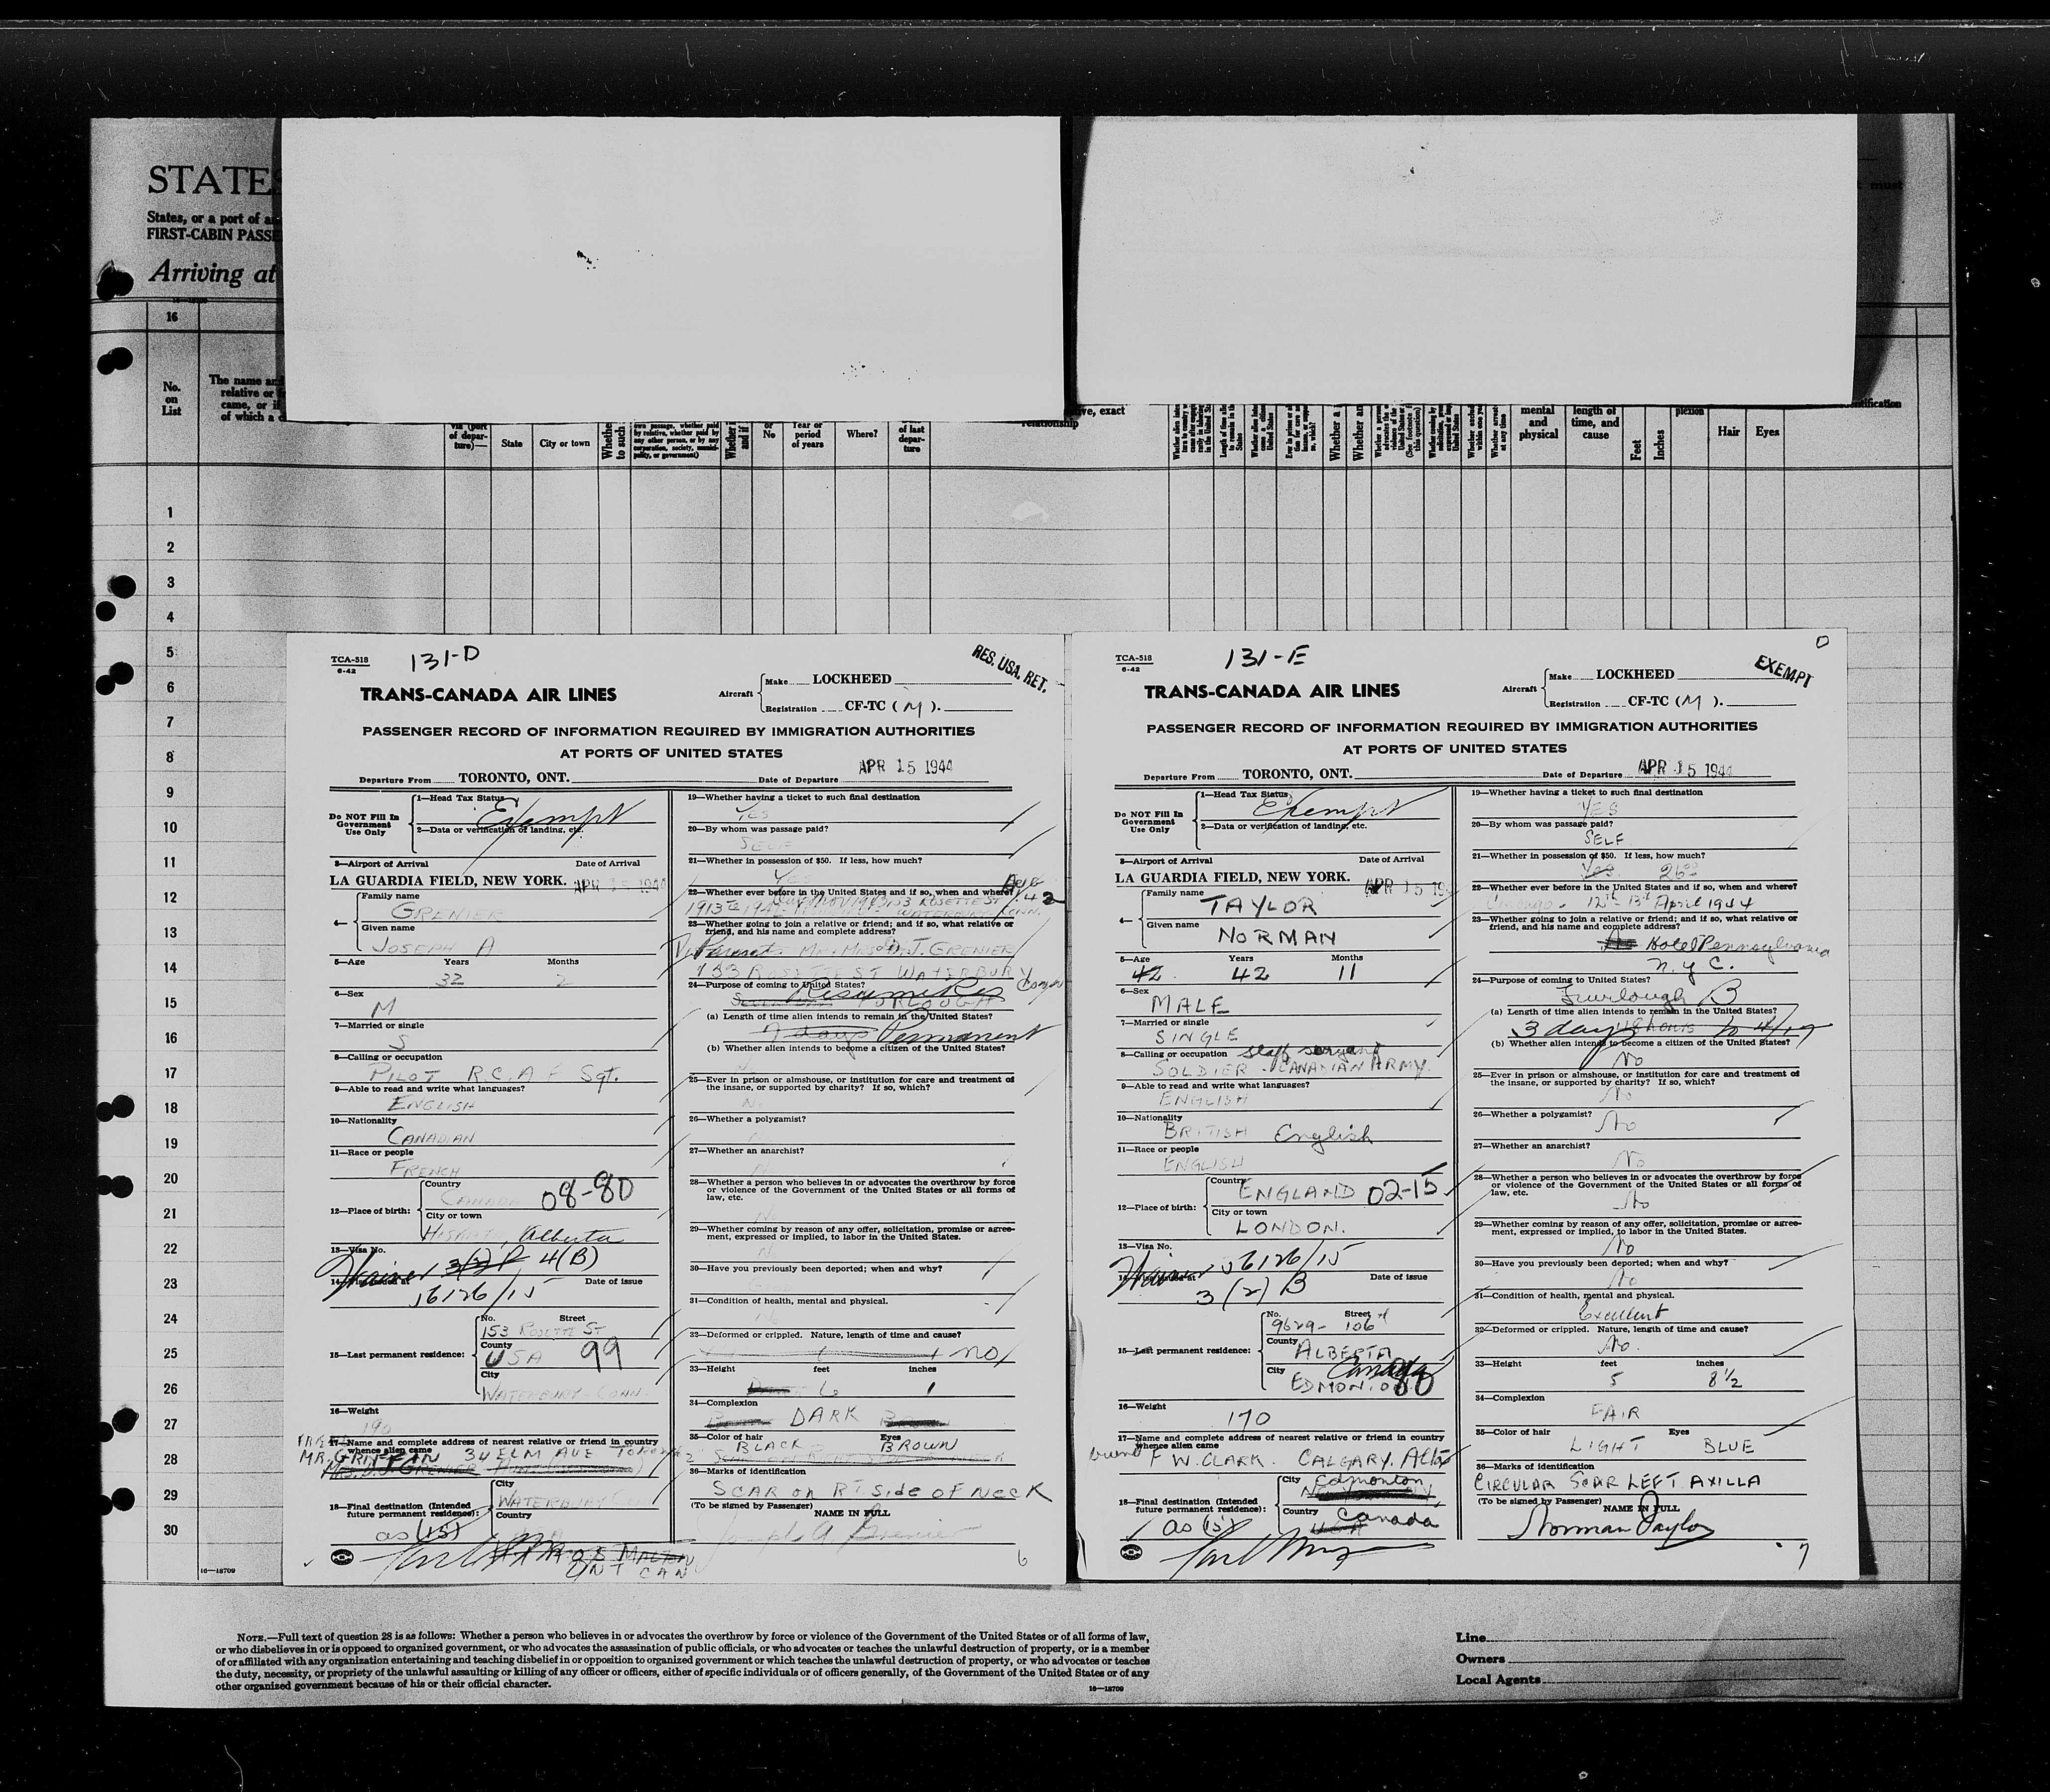 STATES
States, or a port of
FIRST-CABIN
Arriving at
16
No.
on
List
The name and
relative or
came, or if
of which a
via (port
of depar-
ture)—
State
City or town
Whether
to such
own passage, whether paid
by relative, whether paid by
any other person, or by any
corporation, society, munici-
pality, or government)
or
No
Year or
period
of years
Where?
of last
depar-
ture
exact
relationship
Whether a
mental
and
physical
length of
time, and
cause
Feet
Inches
Hair
Eyes
must
1
2
3
4
5
6
7
8
9
10
11
12
13
14
15
16
17
18
19
20
21
22
23
24
25
26
27
28
29
30
16—18709
TCA-518
6-42
131-D
RES. USA. RET.
TRANS-CANADA AIR LINES
Aircraft
Make LOCKHEED
Registration CF-TC (M).
PASSENGER RECORD OF INFORMATION REQUIRED BY IMMIGRATION AUTHORITIES
AT PORTS OF UNITED STATES
Departure From TORONTO, ONT. Date of Departure APR 15 1944
Do NOT Fill In
Government
Use Only
1—Head Tax Status
Exempt
2—Data or verification of landing, etc.
3—Airport of Arrival Date of Arrival
LA GUARDIA FIELD, NEW YORK. APR 15 1944
4—
Family name
GRENIER
Given name
JOSEPH A
5—Age Years Months
32 2
6—Sex
M
7—Married or single
S
8—Calling or occupation
PILOT R.C.A F Sgt.
9—Able to read and write what languages?
ENGLISH
10—Nationality
CANADIAN
11—Race or people
FRENCH
12—Place of birth:
Country
CANADA 08-80
City or town
Alberta
13—Visa No.
Waiver 3(2) 4(B)
14—Issued at Date of issue
56126/15
15—Last permanent residence:
No. Street
153 ROSETTE ST
County
USA 99
City
WATERBURY-CONN.
16—Weight
190
17—Name and complete address of nearest relative or friend in country
whence alien came
MR. GRIFFAN 34 ELM AVE TORONTO
MRS. D.J. GRENIER
18—Final destination (Intended
future permanent residence):
City
WATERBURY
Country
as (15)
MALTON
ONT CAN
19—Whether having a ticket to such final destination
YES
20—By whom was passage paid?
SELF
21—Whether in possession of $50. If less, how much?
Yes
22—Whether ever before in the United States and if so, when and where?
1913 to 1942 153 ROSETTE ST
WATERBURY CONN.
23—Whether going to join a relative or friend; and if so, what relative or
friend, and his name and complete address?
Parents Mr + Mrs D.J. GRENIER
153 ROSETTE ST WATERBURY Conn
24—Purpose of coming to United States?
FURLOUGH
(a) Length of time alien intends to remain in the United States?
7 days Permanent
(b) Whether alien intends to become a citizen of the United States?
25—Ever in prison or almshouse, or institution for care and treatment of
the insane, or supported by charity? If so, which?
No
26—Whether a polygamist?
27—Whether an anarchist?
28—Whether a person who believes in or advocates the overthrow by force
or violence of the Government of the United States or all forms of
law, etc.
No
29—Whether coming by reason of any offer, solicitation, promise or agree-
ment, expressed or implied, to labor in the United States.
No
30—Have you previously been deported; when and why?
31—Condition of health, mental and physical.
32—Deformed or crippled. Nature, length of time and cause?
no
33—Height feet inches
6 1
34—Complexion
DARK
35—Color of hair Eyes
BLACK BROWN
36—Marks of identification
SCAR on RT Side OF NECK
(To be signed by Passenger)
NAME IN FULL
Joseph A Grenier
6
TCA-518
6-42
131-E
EXEMPT
TRANS-CANADA AIR LINES
Aircraft
Make LOCKHEED
Registration CF-TC (M).
PASSENGER RECORD OF INFORMATION REQUIRED BY IMMIGRATION AUTHORITIES
AT PORTS OF UNITED STATES
Departure From TORONTO, ONT. Date of Departure APR 15 1944
Do NOT Fill In
Government
Use Only
1—Head Tax Status
Exempt
2—Data or verification of landing, etc.
3—Airport of Arrival Date of Arrival
LA GUARDIA FIELD, NEW YORK. APR 15 19
4—
Family name
TAYLOR
Given name
NORMAN
5—Age Years Months
42 42 11
6—Sex
MALE
7—Married or single
SINGLE
8—Calling or occupation
SOLDIER - CANADIAN ARMY.
9—Able to read and write what languages?
ENGLISH
10—Nationality
BRITISH English
11—Race or people
ENGLISH
12—Place of birth:
Country
ENGLAND 02-15
City or town
LONDON.
13—Visa No.
Waiver 56126/15
14—Issued at Date of issue
3(2) B
15—Last permanent residence:
No. Street
9629- 106
County
ALBERTA
City Canada
EDMONTON 80
16—Weight
170
17—Name and complete address of nearest relative or friend in country
whence alien came
friend F W. CLARK. CALGARY. Alta
18—Final destination (Intended
future permanent residence):
City
Edmonton
Country
Canada
as (15)
19—Whether having a ticket to such final destination
YES
20—By whom was passage paid?
SELF
21—Whether in possession of $50. If less, how much?
Yes. 26
22—Whether ever before in the United States and if so, when and where?
Chicago - 12th - 13th April 1944
23—Whether going to join a relative or friend; and if so, what relative or
friend, and his name and complete address?
Hotel Pennsylvania
N.Y.C.
24—Purpose of coming to United States?
Furlough B
(a) Length of time alien intends to remain in the United States?
3 days to 4/17
(b) Whether alien intends to become a citizen of the United States?
No
25—Ever in prison or almshouse, or institution for care and treatment of
the insane, or supported by charity? If so, which?
No
26—Whether a polygamist?
No
27—Whether an anarchist?
No
28—Whether a person who believes in or advocates the overthrow by force
or violence of the Government of the United States or all forms of
law, etc.
No
29—Whether coming by reason of any offer, solicitation, promise or agree-
ment, expressed or implied, to labor in the United States.
No
30—Have you previously been deported; when and why?
No
31—Condition of health, mental and physical.
Excellent
32—Deformed or crippled. Nature, length of time and cause?
No.
33—Height feet inches
5 8 1/2
34—Complexion
FAIR
35—Color of hair Eyes
LIGHT BLUE
36—Marks of identification
CIRCULAR SCAR LEFT AXILLA
(To be signed by Passenger)
NAME IN FULL
Norman Taylor
7
NOTE.—Full text of question 28 is as follows: Whether a person who believes in or advocates the overthrow by force or violence of the Government of the United States or of all forms of law,
or who disbelieves in or is opposed to organized government, or who advocates the assassination of public officials, or who advocates or teaches the unlawful destruction of property, or is a member
of or affiliated with any organization entertaining and teaching disbelief in or opposition to organized government or which teaches the unlawful destruction of property, or who advocates or teaches
the duty, necessity, or propriety of the unlawful assaulting or killing of any officer or officers, either of specific individuals or of officers generally, of the Government of the United States or of any
other organized government because of his or their official character.
16—18709
Line
Owners
Local Agents